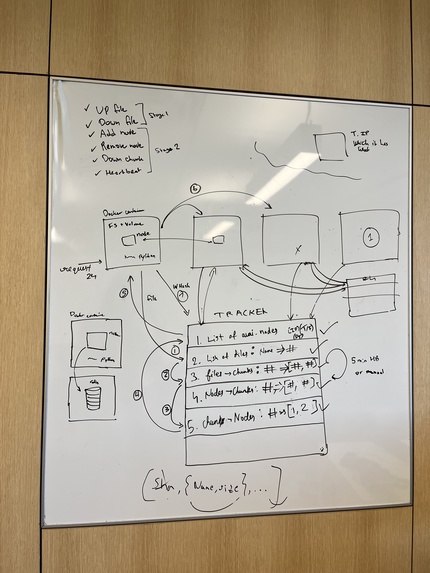 ✓ Up file
✓ Down file
✓ Add node
✓ Remove node
✓ Down chunk
✓ Heartbeat
Stage 1
Stage 2
T. IP
which is
Docker container
FS + Volume
node
Python
6
1
request
file
which
5
7
Docker container
TRACKER
1. List of avai. nodes
2. List of files: Name → #
3. files → chunks: # → [#, #]
4. Nodes → Chunks: #, → [#, #]
5. chunks → Nodes: # → [1, 2]
1
2
3
4
5 min HB
or manual
{Name, size}, ...